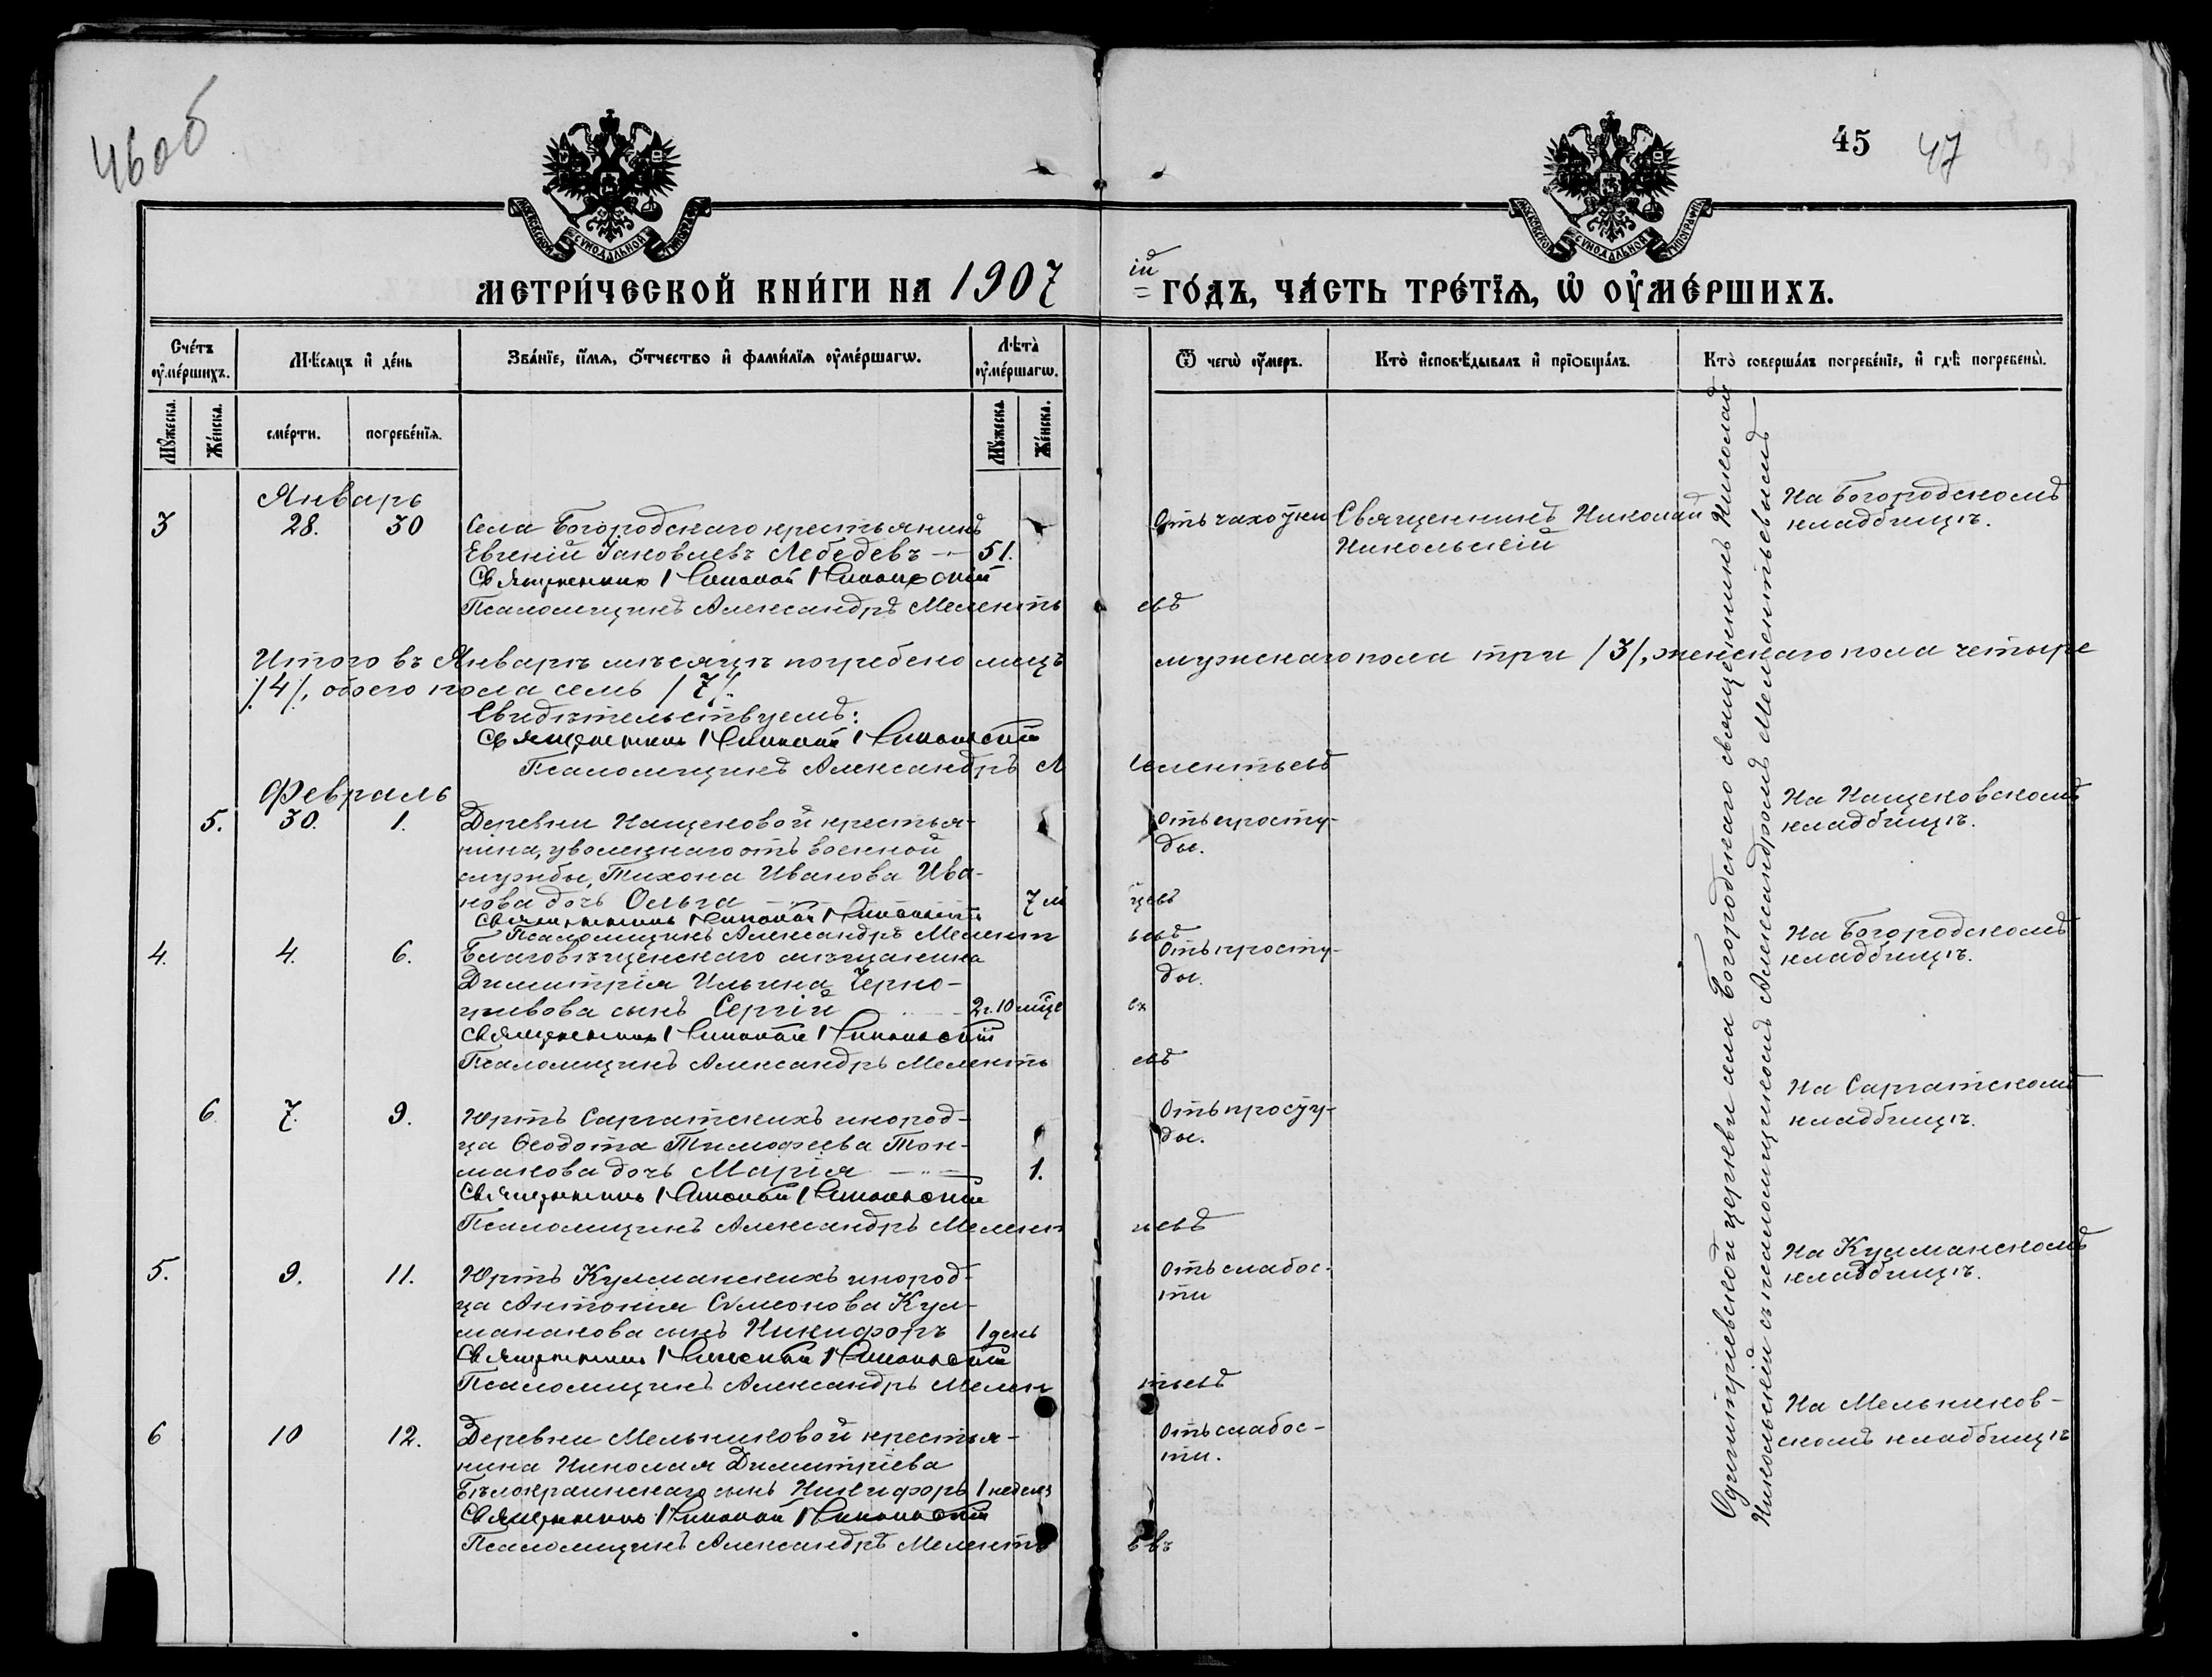 46об
45 47
МОСКОВСКОЙ СѴНОДАЛЬНОЙ ТИПОГРАФІИ
МОСКОВСКОЙ СѴНОДАЛЬНОЙ ТИПОГРАФІИ
МЕТРИ́ЧЕСКОЙ КНИ́ГИ НА 1907 ій ГО́ДЪ, ЧА́СТЬ ТРЕ́ТЇѦ, Ѡ҆ ОУ҆МЕ́РШИХЪ.
Сче́тъ оу҆ме́ршихъ.
Мѣ́сяцъ и҆ де́нь
Зва́нїе, и҆́мѧ, ѻ҆́тчество и҆ фами́лїѧ оу҆ме́ршагѡ.
Лѣ́та̀ оу҆ме́ршагѡ.
Ѿ чегѡ̀ оу҆́меръ.
Кто̀ и҆сповѣ́дывалъ и҆ прїѡбща́лъ.
Кто̀ соверша́лъ погребе́нїе, и҆ гдѣ̀ погребены̀.
Мꙋ́жеска. Же́нска. сме́рти. погребе́нїѧ. Мꙋ́жеска. Же́нска.
Январь
3 28. 30 Села Богородскаго крестьянинъ
Евгеній Іаковлевъ Лебедевъ 51.
Священникъ Николай Никольскій
Псаломщикъ Александръ Мелентьевъ
Отъ чахотки
Священникъ Николай
Никольскій
На Богородскомъ
кладбищѣ.
Итого въ Январѣ мѣсяцѣ погребено лицъ мужскаго пола три /3/, женскаго пола четыре
/4/, обоего пола семь /7/.
Свидѣтельствуемъ:
Священникъ Николай Никольскій
Псаломщикъ Александръ Мелентьевъ
Февраль
5. 30. 1. Деревни Кащеновой крестья-
нина, уволеннаго отъ военной
службы, Тихона Иванова Ива-
нова дочь Ольга 7 мѣсяцевъ
Священникъ Николай Никольскій
Псаломщикъ Александръ Мелентьевъ
Отъ просту-
ды.
На Кащеновскомъ
кладбищѣ.
4. 4. 6. Благовѣщенскаго мѣщанина
Димитрія Ильина Черно-
гривова сынъ Сергій 2 г. 10 мѣсяцевъ
Священникъ Николай Никольскій
Псаломщикъ Александръ Мелентьевъ
Отъ просту-
ды.
На Богородскомъ
кладбищѣ.
6. 7. 9. Юртъ Саргатскихъ инород-
ца Ѳеодота Тимофеева Тон-
макова дочь Марія 1.
Священникъ Николай Никольскій
Псаломщикъ Александръ Мелентьевъ
Отъ просту-
ды.
На Саргатскомъ
кладбищѣ.
5. 9. 11. Юртъ Кулманскихъ инород-
ца Антонія Сѵмеонова Кул-
маманова сынъ Никифоръ 1 день
Священникъ Николай Никольскій
Псаломщикъ Александръ Мелентьевъ
Отъ слабос-
ти
На Кулманскомъ
кладбищѣ.
6 10 12. Деревни Мельниковой крестья-
нина Николая Димитріева
Бѣлокраинскаго сынъ Никифоръ 1 неделя
Священникъ Николай Никольскій
Псаломщикъ Александръ Мелентьевъ
Отъ слабос-
ти.
На Мельников-
скомъ кладбищѣ
Одигитріевской церкви села Богородскаго священникъ Николай
Никольскій съ псаломщикомъ Александромъ Мелентьевымъ